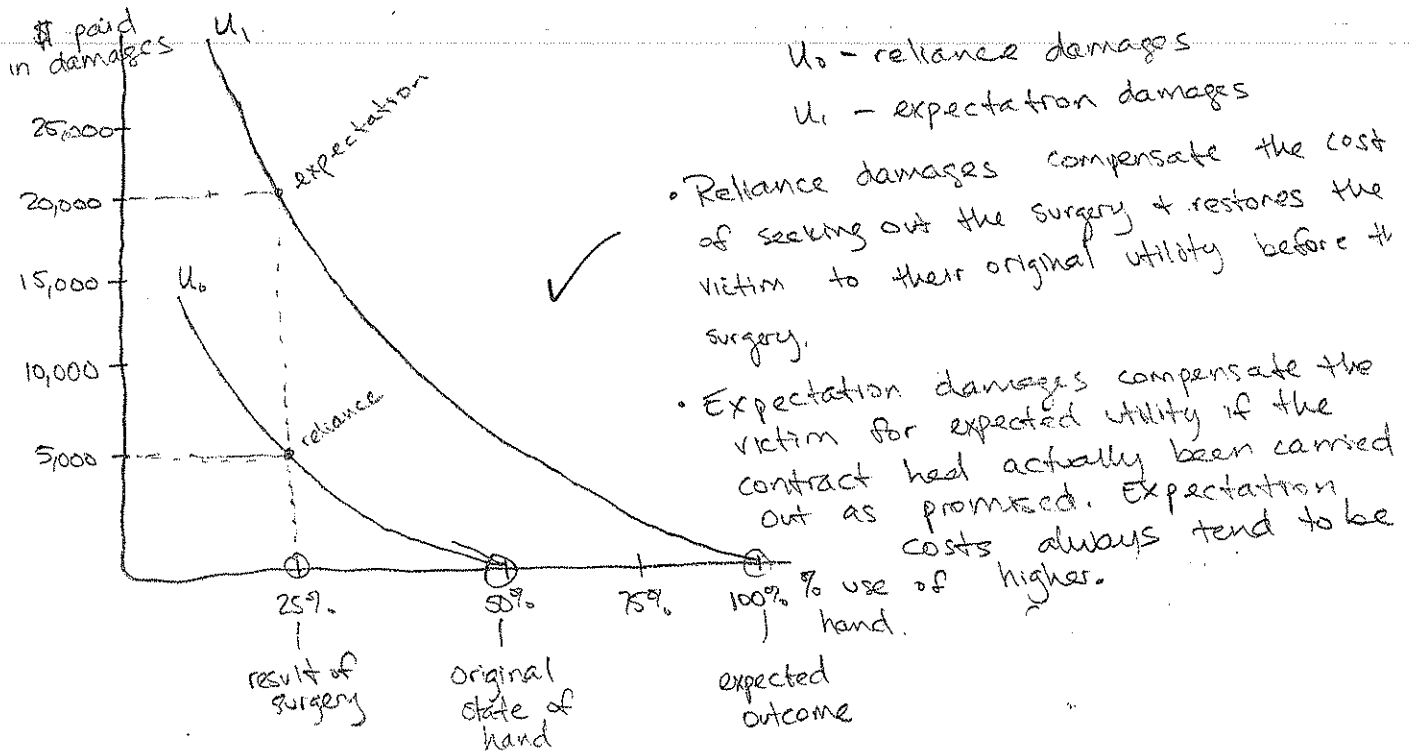 $ paid
in damages
U₁
25,000
20,000
15,000
10,000
5,000
expectation
U₀
reliance
25%
50%
75%
100%
% use of
hand.
result of
surgery
original
state of
hand
expected
outcome
U₀ - reliance damages
U₁ - expectation damages
• Reliance damages compensate the cost
of seeking out the surgery + restores the
victim to their original utility before th
surgery.
• Expectation damages compensate the
victim for expected utility if the
contract had actually been carried
out as promised. Expectation
costs always tend to be
higher.